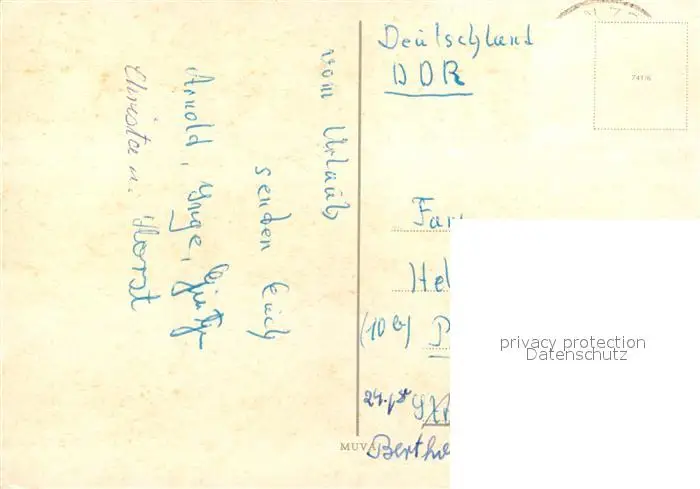 vom Urlaub
senden Euch
Arnold, Inge, Günter
Christa u. Horst
Deutschland
DDR
74176
Fam
Hel
(10b) P
24. 
Berthe
MUVA
privacy protection
Datenschutz